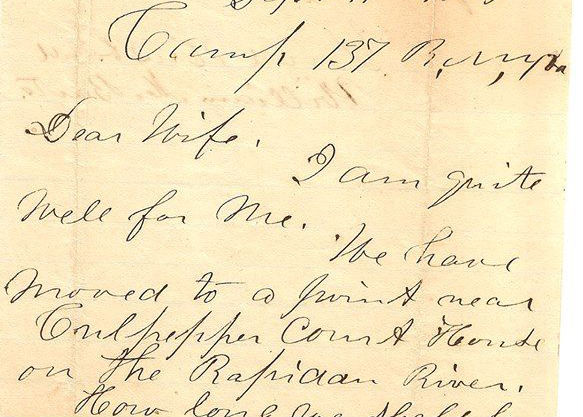 Camp 137
Dear Wife.
I am quite
well for me.
We have
moved to a point near
Culpepper Court House
on the Rapidan River.
How long we shall